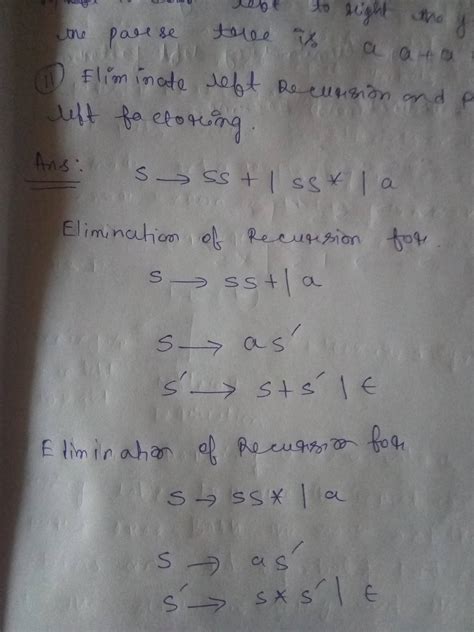 left to right the y
the parse tree is a a+a
(11) Eliminate left Recursion and p
left factoring.
Ans: S → SS+ | SS* | a
Elimination of Recursion for
S → SS+ | a
S → aS′
S′ → S+S′ | ϵ
Elimination of Recursion for
S → SS* | a
S → aS′
S′ → S*S′ | ϵ